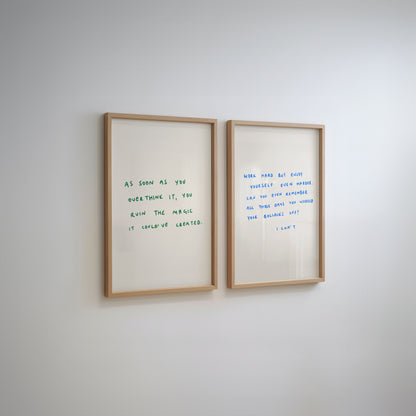 AS SOON AS YOU
OVERTHINK IT, YOU
RUIN THE MAGIC
IT COULD'VE CREATED.
WORK HARD BUT ENJOY
YOURSELF EVEN HARDER.
CAN YOU EVEN REMEMBER
ALL THOSE DAYS YOU WORKED
YOUR BOLLOCKS OFF?
I CAN'T